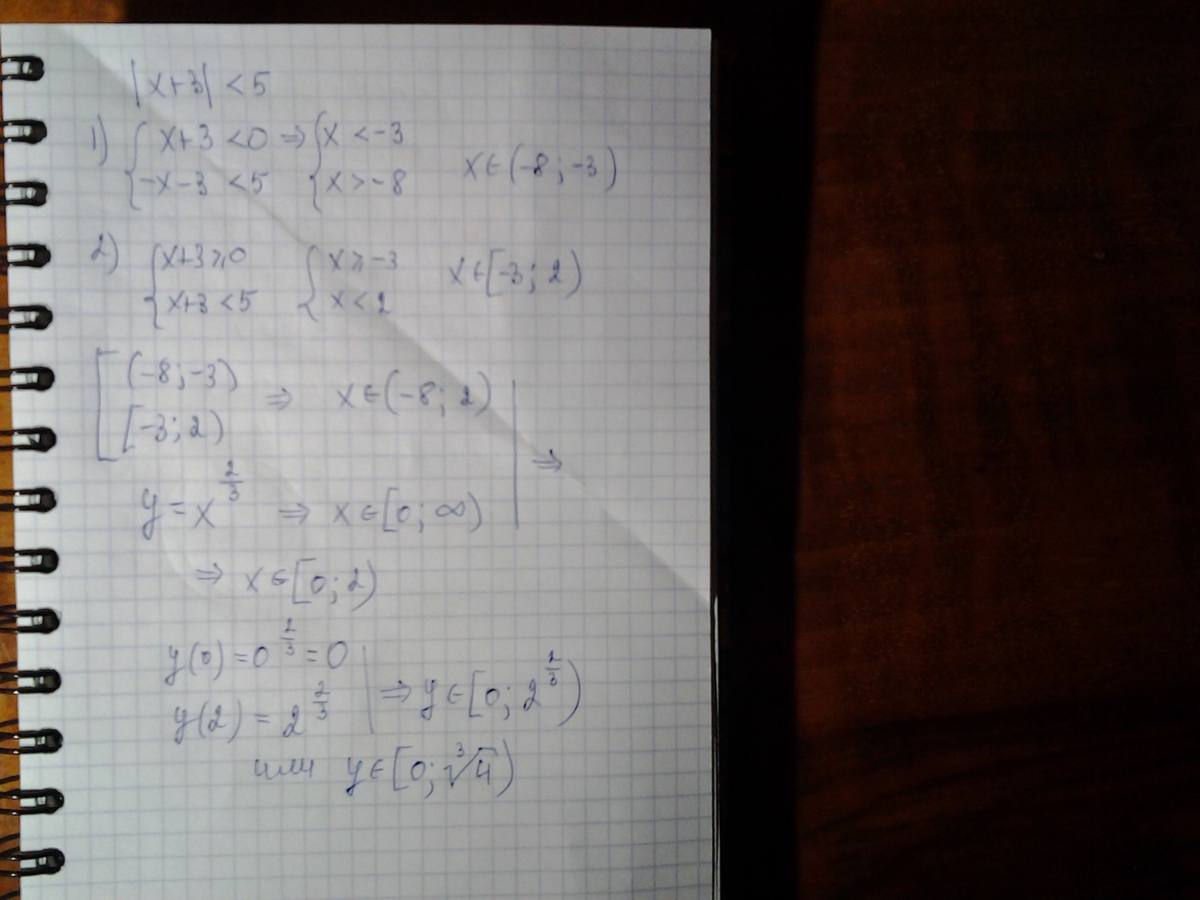 |x+3| <5
1) { x+3 <0 ⇒ { x < -3
{ -x-3 <5 { x > -8 x∈(-8; -3)
2) { x+3⩾0 { x ⩾ -3 x∈[-3; 2)
{ x+3 <5 { x < 2
[ (-8; -3)
[ [-3; 2) ⇒ x∈(-8; 2) | ⇒
y = x^(2/3) ⇒ x∈[0; ∞) |
⇒ x∈[0; 2)
y(0) = 0^(2/3) = 0 |
y(2) = 2^(2/3) | ⇒ y∈[0; 2^(2/3))
или y∈[0; ∛4)